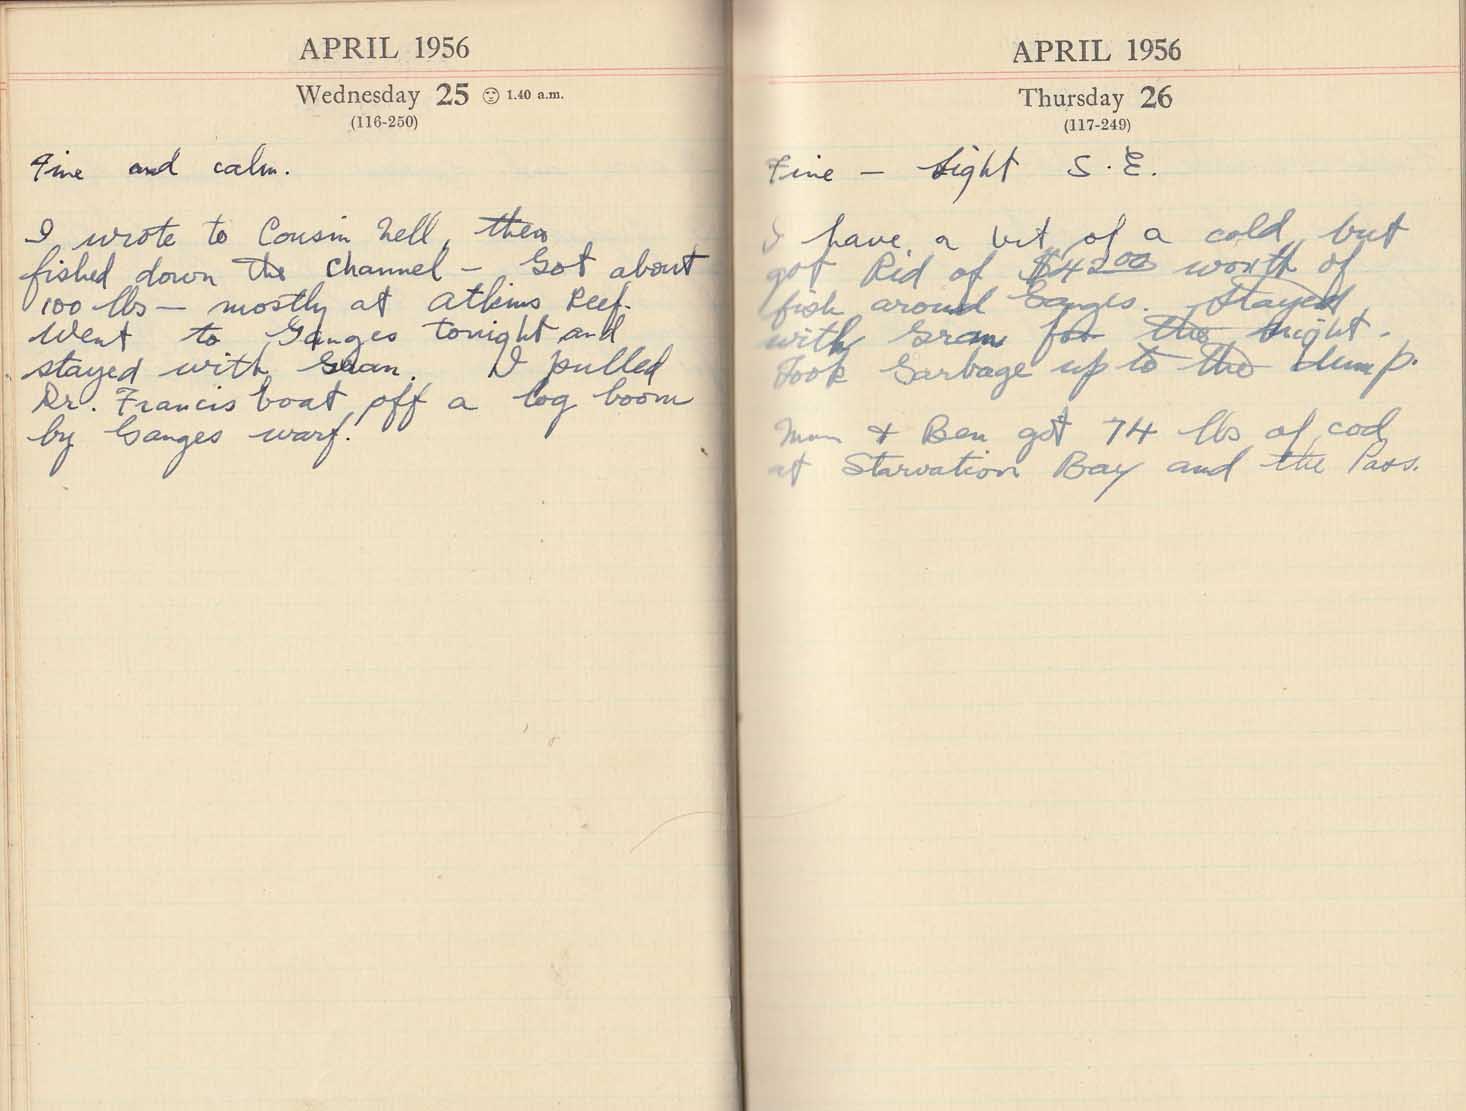 APRIL 1956
Wednesday 25 1.40 a.m.
(116-250)
Fine and calm.
I wrote to Cousin Nell, then
fished down the Channel - Got about
100 lbs - mostly at Atkins Reef.
Went to Ganges tonight and
stayed with Gran. I pulled
Dr. Francis boat off a log boom
by Ganges warf.
APRIL 1956
Thursday 26
(117-249)
Fine - Light S.E.
I have a bit of a cold, but
got Rid of $42.00 worth of
fish around Ganges. Stayed
with Gran for the night.
Took Garbage up to the dump.
Mum & Ben got 74 lbs of cod
at Starvation Bay and the Pass.